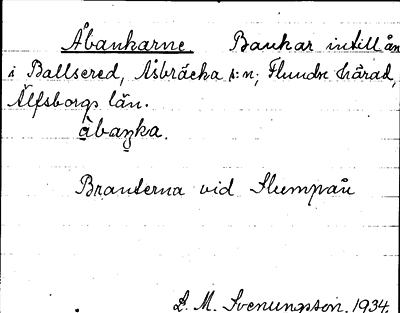 Åbankarne. Bankar intill ån
i Ballsered, Åsbräcka s:n, Flundre härad,
Älfsborgs län.
åbaŋka.
Branterna vid Slumpån
L. M. Svenungsson. 1934.